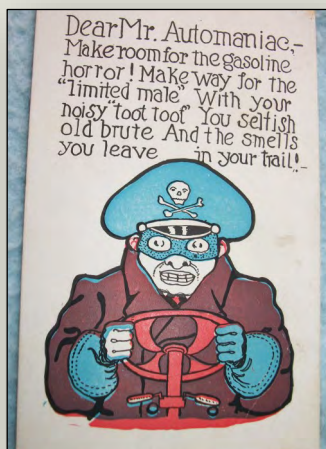 Dear Mr. Automaniac,-
Make room for the gasoline
horror! Make way for the
"limited male" With your
noisy "toot toot" You selfish
old brute And the smells
you leave in your trail!-